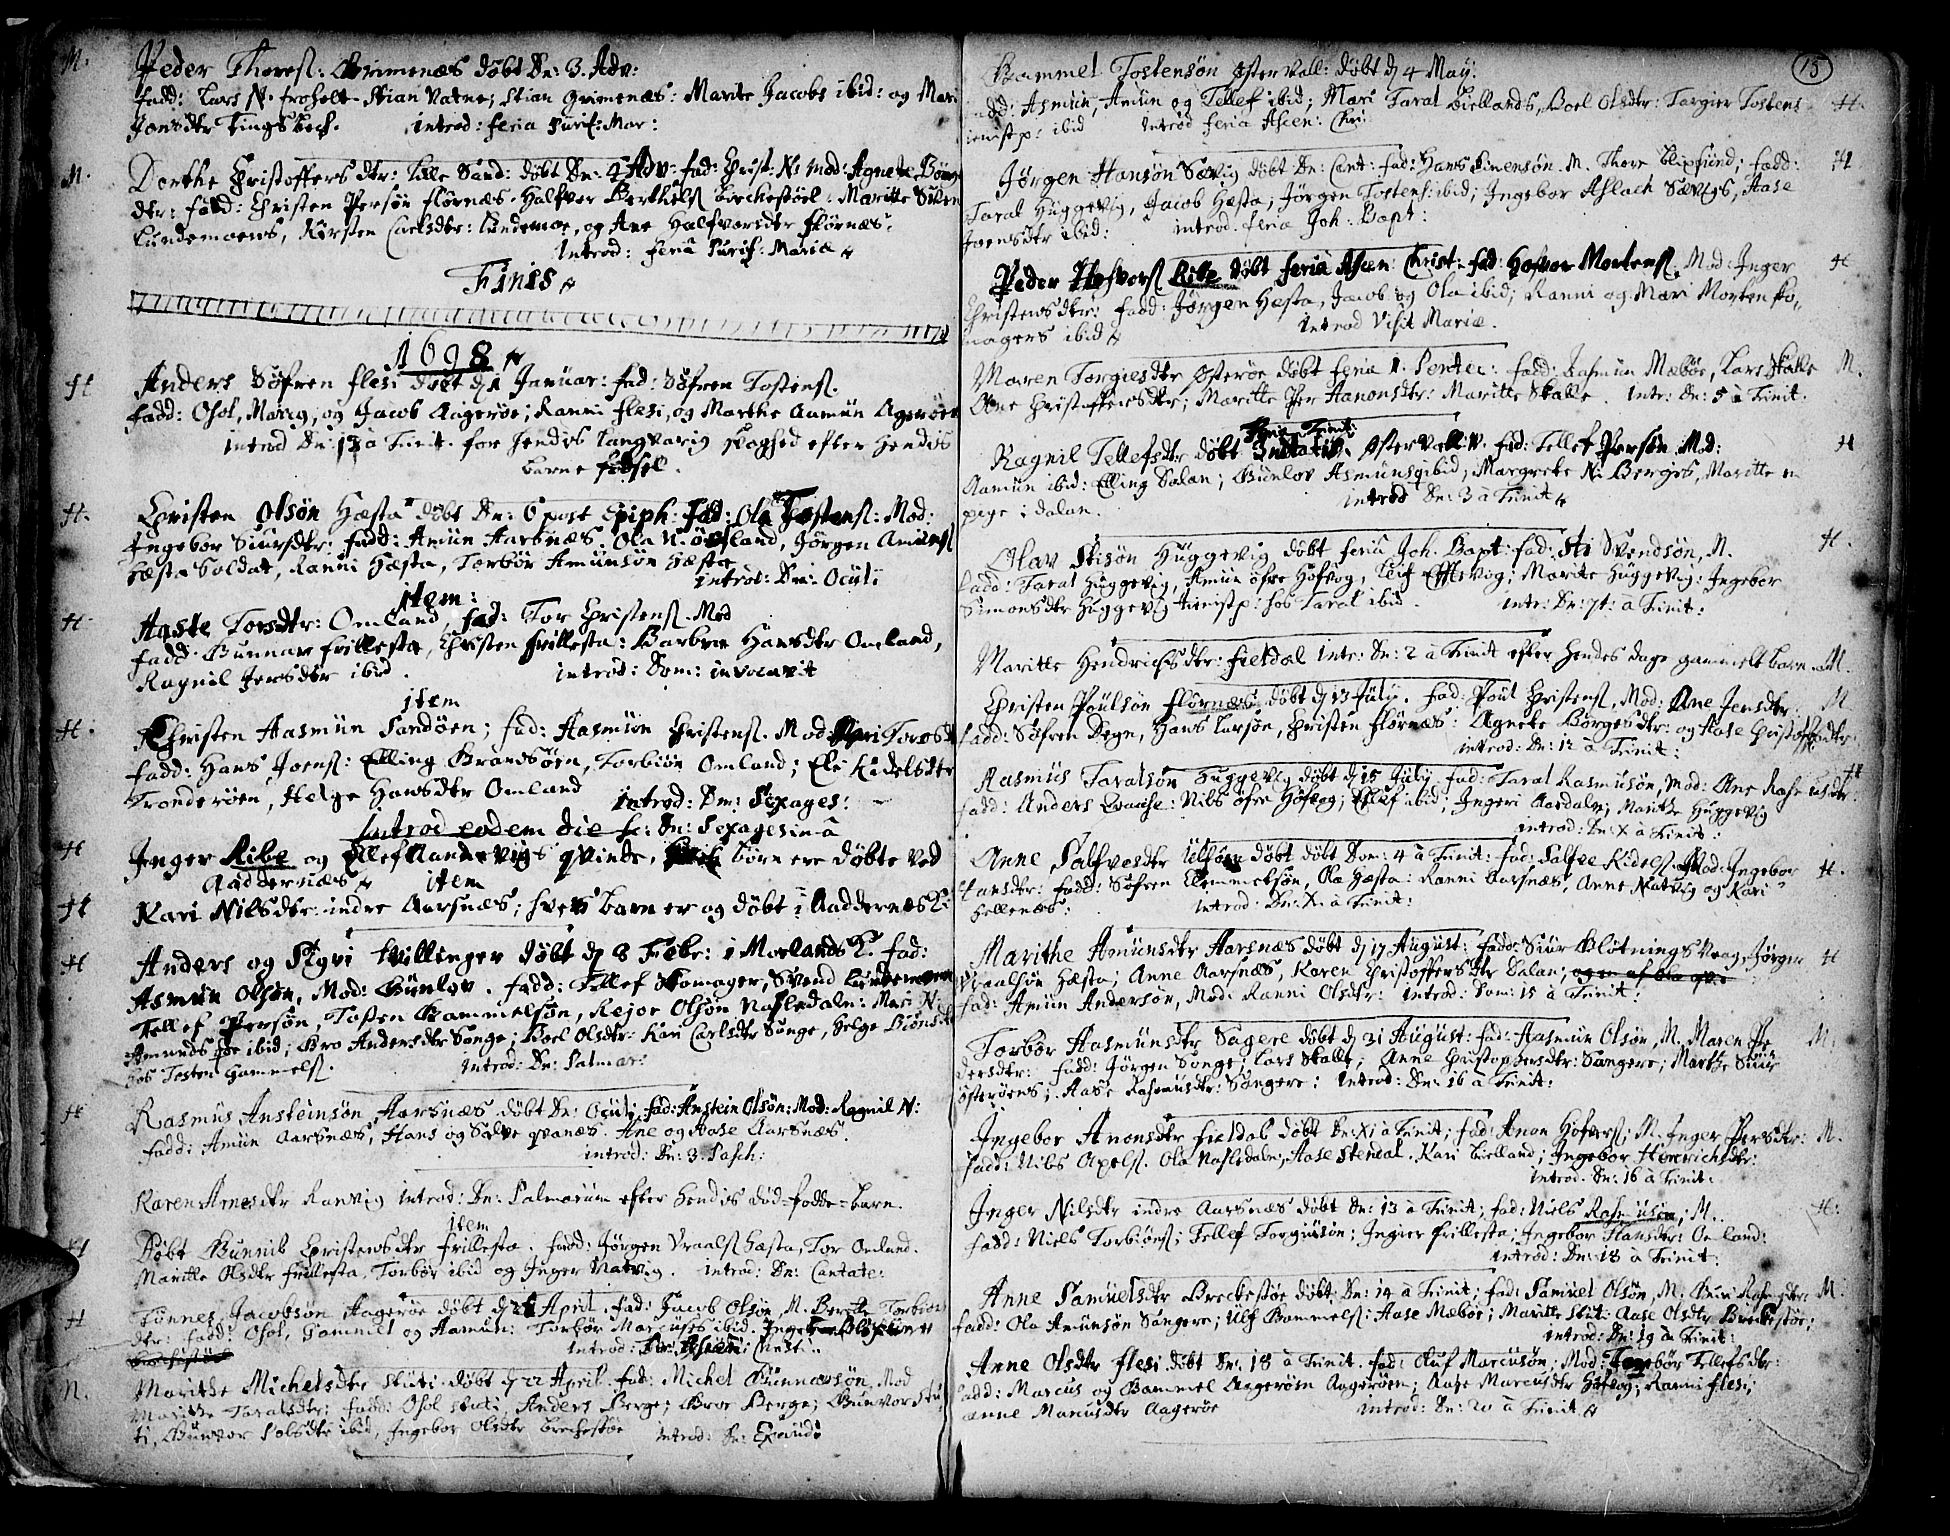 M. Peder Thores: Grimenæs døbt Dn: 3. Adv:
fadd: Lars N. froholt Stian Vatne; Stian Grimenæs: Marite Jacobs ibid: og Mari
Jonsdtr Tingsbech. introd: feria purif: Mar:
M. Dorthe Christoffersdtr: Lille Sand: døbt Dn: 4 Adv: fad: Christ: N: Mod: Agnete Børge
dtr: fadd: Christen Persøn flørnæs. Halfvor Berthels brechestøel: Maritte Siven
Lundemoens, Kirsten Carlsdtr: Lundemoe, og Ane Halfvorsdtr flørnæs:
Introd: feriâ Purif: Mariæ
Finis
1698
H Anders Søfren flesi døbt d 1 Januar: fad: Søfren Tostens.
fadd: Osol, Marcus, og Jacob Aagerøe; Ranni flesi, og Marthe Aamun Agerøe
introd Dn: 13 à Trinit. for hendis langvarig skrøghed efter hendis
barne fødsel.
H. Christen Olsøn Hæsta døbt Dn: 6 post Epiph: fad: Ola Tostens: Mod:
Ingebor Siursdtr: fadd: Amun Aarsnæs. Ola N. land, Jørgen Amuns
Hæsta Soldat, Ranni Hæsta, Torbør Amunsøn Hæsta
introd: Dni: Oculi
item:
H Aaste Torsdtr: Omland, fad: Tor Christens. Mod
fadd Gunnar frillesta, Christen frillesta: Barbra Hansdtr Omland,
Ragnil Jensdtr ibid. introd: Dom: invocavit
item
H. Christen Aasmun Sandøen; fad: Aasmun Christens. Mod Mari Torsd
fadd: Hans Joens: Elling Brandsøen, Torbiøn Omland; Eli Kidelsdtr
Tronderøen, Helge Hansdtr Omland introd: Dn: Sexages:
Introd eodem die sc: Dn: Sexagesimâ
H Inger Ribe og Ellef Randevigs qvinde, børn ere døbte ved
Aaddernæs
item
H Kari Nilsdtr: indre Aarsnæs; hvers barn er og døbt i Aaddernæs K:
H Anders og Sigri tvillinger døbt d 8 Febr: i Morlands K. fad:
Asmun Olsøn, Mod: Gunlov. fadd: Tellef Skomager, Svend Lundemoen
Tellef Persøn, Tosten Gammelsøn, Rejor Olsøn Nasledalen: Mari N:
Amunds søe ibid; Bro Andersdtr Songe; Boel Olsdtr: Kari Carlsdtr Songe, Helge Biønsdtr
hos Tosten Gammels. introd: Dn: Palmar:
H Rasmus Ansteinsøn Aarsnæs døbt Dn: Oculi, fad: Anstein Olsøn: Mod: Ragnil N:
fadd: Amun Aarsnæs, Hans og Salve qvanæs. Ane og Aase Aarsnæs.
introd: Dn: 3. Pasch:
Karen Arnesdtr Ranvig introd: Dn: Palmarum efter hendis død-fødde-barn.
item
H døbt Gunnil Christensdtr frillesta. fadd: Jørgen Vraals Hæsta, Tor Omland.
Maritte Olsdtr frillesta, Torbør ibid og Inger Natvig. introd: Dn: Cantate:
H Tønnes Jacobsøn Aagerøe døbt d April. fad: Jacob Olsøn, M. Berte Torbiøns
dtr: fadd: Osol, Gammel og Aamun: Torbør Marcuses ibid.
introd: Fer: Ascen: Christi.
N. Marithe Michelsdtr Skuti døbt d 22 April. fad: Michel Gunnarsøn, Mod
Maritte Taralsdtr; fadd: Osol Skuti, Anders Berge; Bror Berge; Gunvor Sku
ti, Gunvor Solsdtr ibid, Ingebor Olsdtr brechestøe introd: Dn: Exaudi
15
Gammel Tostensøn østervall: døbt d 4 May:
fadd: Asmun, Amun og Tellef ibid; Mari Taral Biellands, Boel Olsdtr: Torgier Tostens H.
tienistp: ibid Introd feria Ascen: Chri
Jørgen Hansøn Sævig døbt Dn: Cant: fad: Hans Simensøn. M. Thore Blixsund; fadd: H
Taral Huggevig, Jacob Hæsta, Jørgen Tostens: ibid; Ingebor Aslach Sævigs, Aase
Joensdtr ibid: introd. feria Joh: Bapt:
Peder Hafvors Kitte døbt feria Ascen: Christ: fad: Hafvor Mortens, Mod: Inger H
Christensdtr: fadd: Jørgen Hæsta, Jacob og Ola ibid; Ranni og Mari Morten sko,
magers ibid introd Visit Mariæ.
Maren Torgiesdtr Østerøe døbt feria 1. Pentec: fadd: Rasmun Mæbøe, Lars Skalle M.
Ane Christoffersdtr; Maritte Per Aanonsdtr: Maritte Skalle. Intr: Dn: 5 à Trinit:
Feria Trinit:
Ragnil Tellefsdtr døbt Østervall: V. fad: Tellef Persøn, Mod: H
Aamun ibid: Elling Dalan; Gunlov Asmuns ibid; Margrete N: Berges, Maritte en
pige i dalan. introd Dn: 3 à Trinit
Olav Stisøn Huggevig døbt feria Joh. Bapt: fad: Sti Svendsøn, M. H.
fadd: Taral Huggevig, Amun øfre Høfvog, Leif Effvog; Maritte Huggevig: Ingebor
Simonsdtr Huggevig tienistp: hos Taral ibid. Intr: Dn: 7t: à Trinit:
Maritte Hendrichsdtr: fieldal Intr: Dn: 2 à Trinit efter hendes dage gammelt barn. M.
Christen Poulsøn flørnæs, døbt d 13 July. fad: Poul Christens, Mod: Ane Jensdtr: M
fadd: Søfren Degn, Hans Larsøn, Christen flørnæs: Agnete Børgesdtr: og Aase Christoffersdtr:
introd: Dn: 12 à Trinit:
Rasmus Taralsøn Huggevig døbt d 15 July. fad: Taral Rasmusøn, Mod: Ane Rasmusdtr: H
fadd: Anders Nils øfre Høfvog; Ellef ibid; Ingeri Aasdalen; Marithe Huggevig
introd: Dn: X à Trinit:
Anne Salfvesdtr Ulføen døbt Dom: 4 à Trinit: fad: Salfve Kidels. Mod: Ingebor H.
Hansdtr: fadd: Søfren Clemmetsøn, Ola Hæsta: Ranni Aarsnæs, Anne Natvig og Kari
Hellenæs: introd: Dn: X à Trinit:
Marithe Amunsdtr Aarsnæs døbt d 17 August: fadd: Siur Vrage, Jørgen H
Vraalsøn Hæsta; Anne Aarsnæs, Karen Christoffersdtr Dalan;
fad: Amun Andersøn, Mod: Ranni Olsdtr: introd: Dom: 15 à Trinit:
Torbør Aasmunsdtr Sagere døbt d 21 August: fad: Aasmun Olsøn, M. Maren Pe M:
dersdtr: fadd: Jørgen Songe, Lars Skalle; Anne Christophersdtr: Sangere; Marthe Siur
østerøens; Aase Rasmusdtr: Sangere; introd: Dn: 16 à Trinit:
Ingebor Anonsdtr fieldal døbt Dn: XI à Trinit; fad: Anon Hofvers: M. Inger Persdtr: M.
fadd: Nils Apels. Ola Nasledalen, Aase Stendal. Kari bielland; Ingebor Henrichsdtr:
introd. Dn: 16 à Trinit:
Inger Nilsdtr indre Aarsnæs døbt Dn: 13 à Trinit; fad: Niels Rasmusen; M. H:
fadd: Niels Torbiøns; Tellef Torgiusøn; Ingier frillesta; Ingebor Hansdtr: Omland:
introd: Dn: 18 à Trinit:
Anne Samuelsdtr Breckestøe døbt Dn: 14 à Trinit; fad: Samuel Olsøn, M: Guri Rasmusdtr: M.
fadd: Ola Amunsøn Sangere; Ulf Gammels: Aase Mæbøe; Maritte Skuti: Aase Olsdtr Breckestøe;
introd: Dn: 19 à Trinit:
Anne Olsdtr flesi døbt Dn: 18 à Trinit. fad: Oluf Marcusøn; Mod: Torbør Tellefsdtr:
fadd: Marcus og Gammel Aagerøen Aagerøen; Aase Marcusdtr Høfvog; Ranni flesi;
Anne Manusdtr Aagerøe introd: Dn: 20 à Trinit